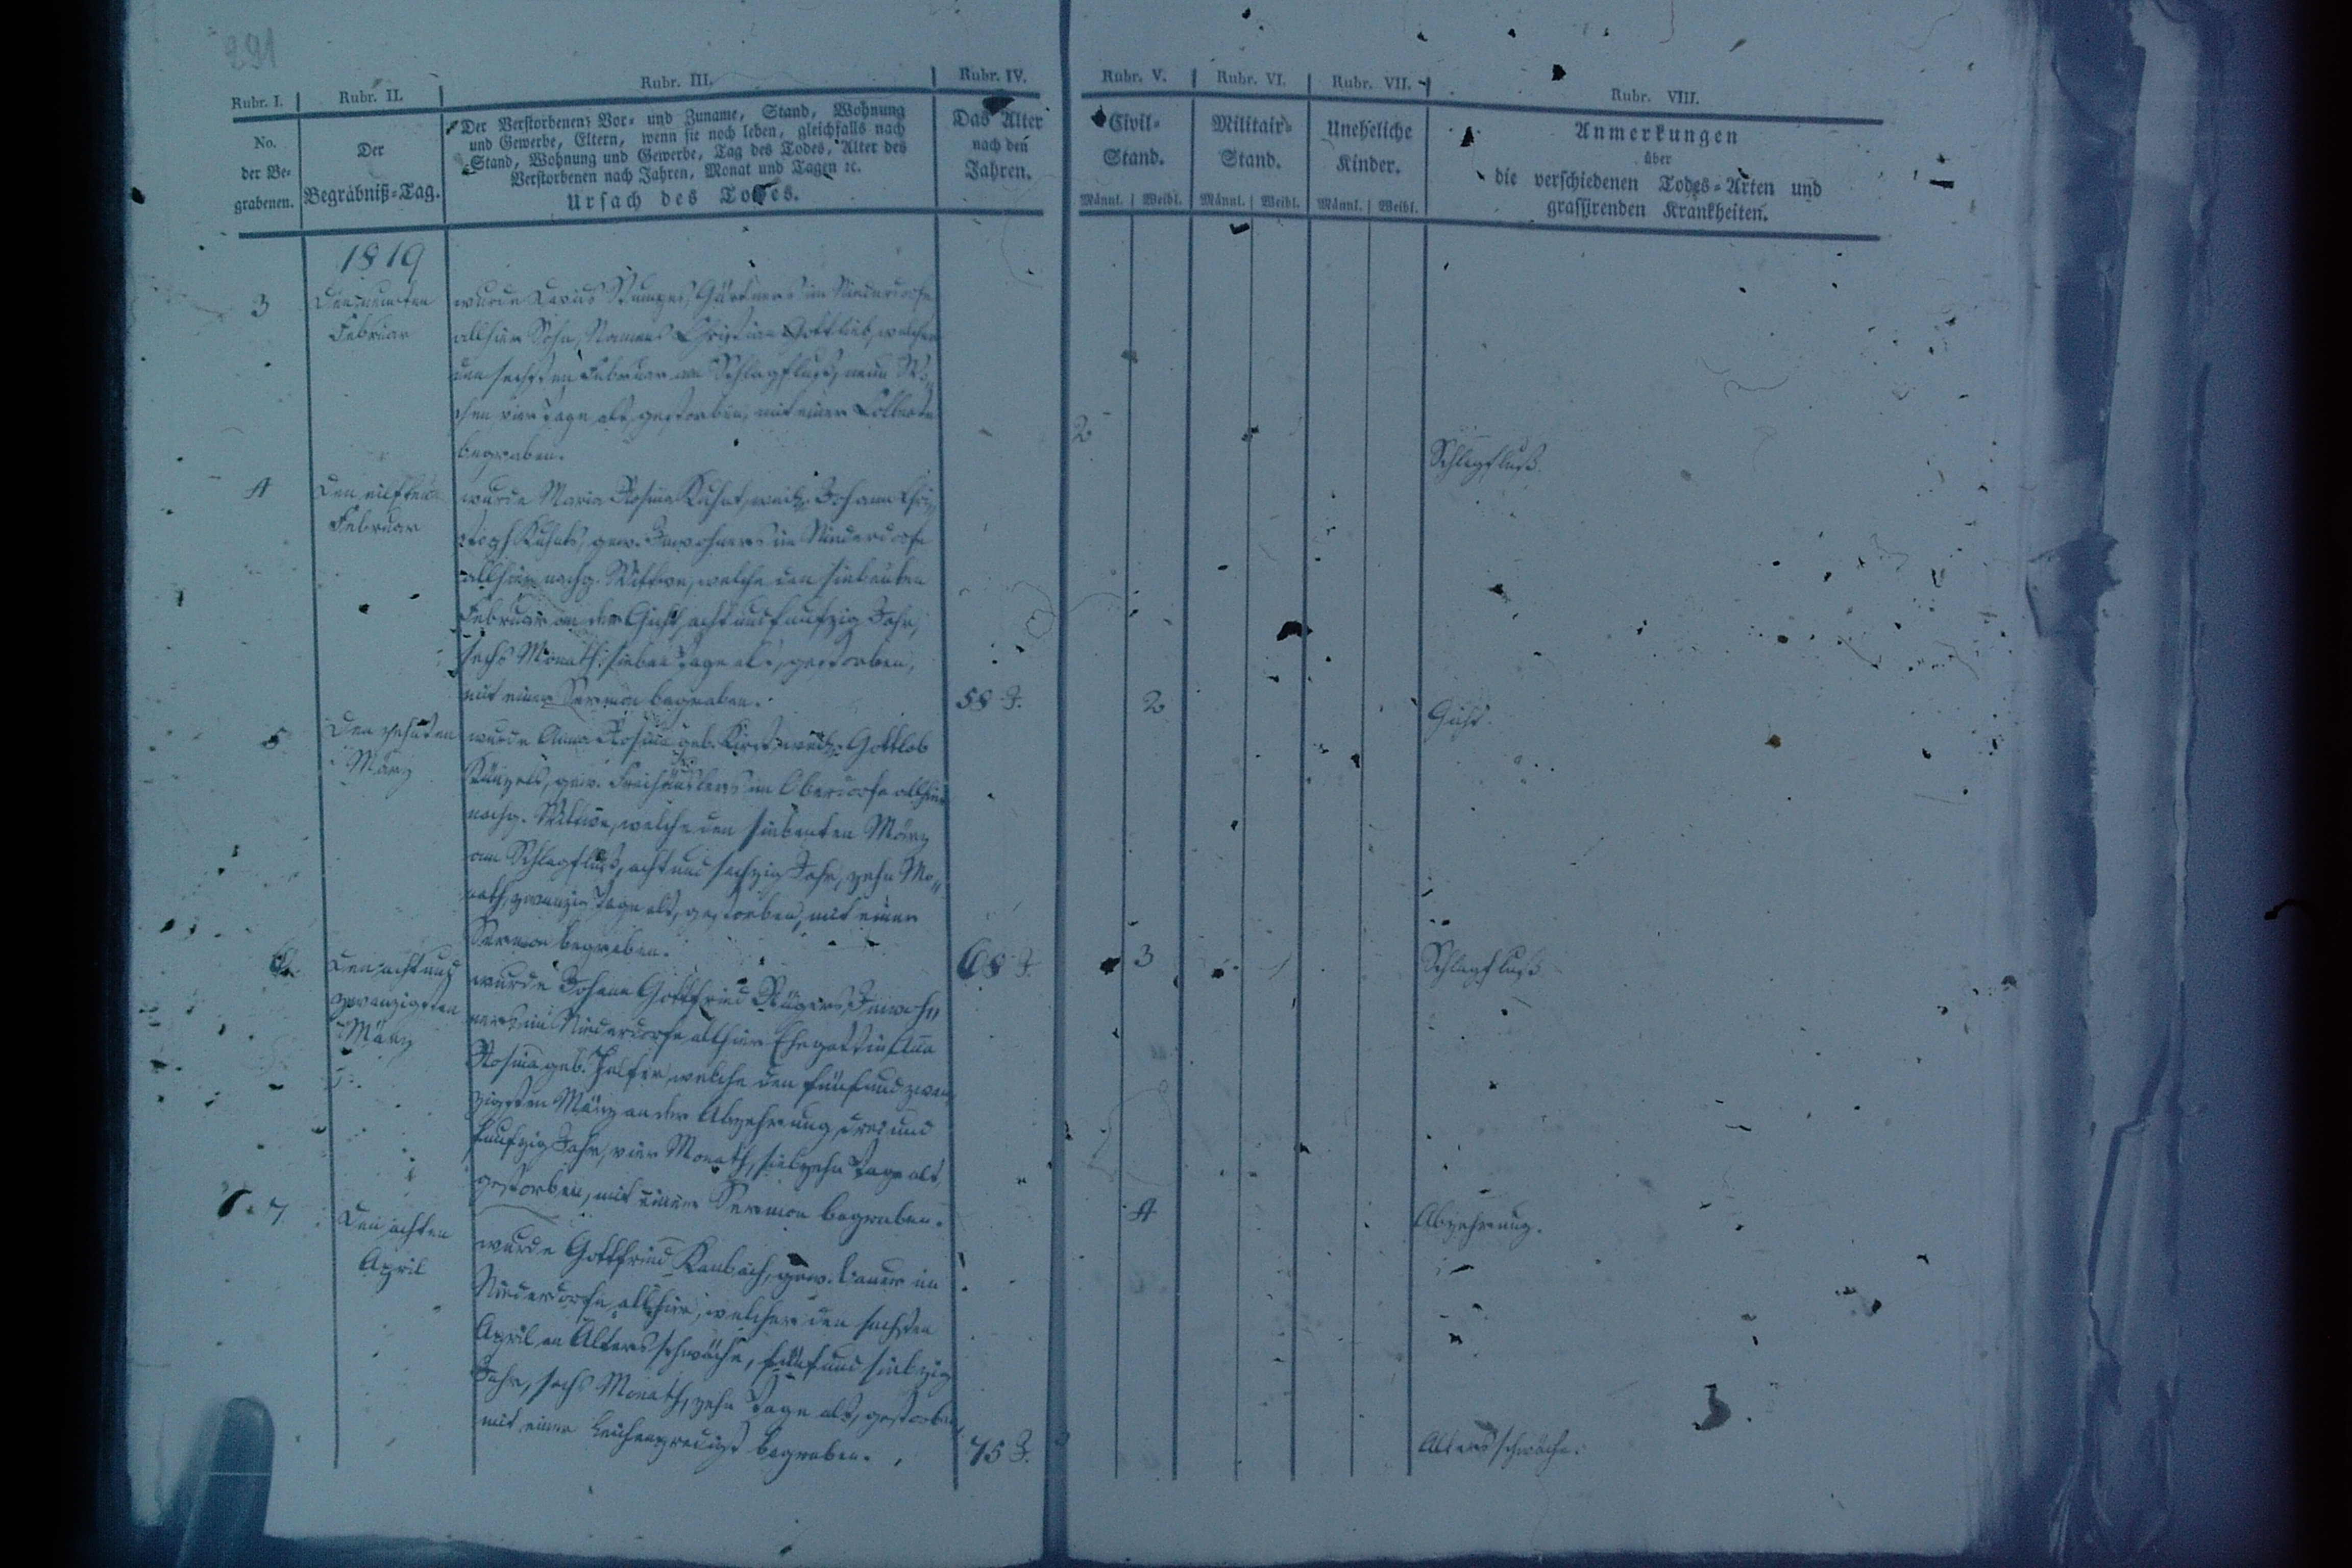 291
Rubr. I. Rubr. II. Rubr. III. Rubr. IV. Rubr. V. Rubr. VI. Rubr. VII. Rubr. VIII.
No.
der Be-
grabenen.
Der
Begräbniß-Tag.
Der Verstorbenen Vor- und Zuname, Stand, Wohnung
und Gewerbe, Eltern, wenn sie noch leben, gleichfalls nach
Stand, Wohnung und Gewerbe, Tag des Todes, Alter des
Verstorbenen nach Jahren, Monat und Tagen ꝛc.
Ursach des Todes.
Das Alter
nach den
Jahren.
Civil-
Stand.
Männl. Weibl.
Militair-
Stand.
Männl. Weibl.
Uneheliche
Kinder.
Männl. Weibl.
Anmerkungen
über
die verschiedenen Todes-Arten und
grassirenden Krankheiten.
1819
3
Den neunten
Februar
wurde David Gärtners im Niederdorfe
allhier Sohn, Namens Christian Gottlieb, welcher
den sechsten Februar am Schlagfluß, neun Wo-
chen vier Tage alt, gestorben, mit einer Collecte
begraben.
2
Schlagfluß.
4
Den eilften
Februar
wurde Maria Rosina Kuhnt, weil. Johann Chri-
stoph Kuhnts, gew. Inwohners im Niederdorfe
allhier nachg. Wittwe, welche den siebenten
Februar an der Gicht, acht und funfzig Jahr,
sechs Monath, sieben Tage alt, gestorben,
mit einer Sermon begraben.
58 J.
2
Gicht.
5
Den zehnten
März
wurde Anna Rosina geb. weil. Gottlob
gew. Freihäuslers im Oberdorfe allhier
nachg. Wittwe, welche den siebenten März
am Schlagfluß, acht und sechzig Jahr, zehn Mo-
nath, zwanzig Tage alt, gestorben, mit einer
Sermon begraben.
68 J.
3
Schlagfluß
6.
Den acht und
zwanzigsten
März
wurde Johann Gottfried Inwoh-
ners im Niederdorfe allhier Ehegattin, Anna
Rosina geb. welche den fünf und zwan-
zigsten März an der Abzehrung, drei und
funfzig Jahr, vier Monath, siebzehn Tage alt,
gestorben, mit einer Sermon begraben.
4
Abzehrung.
7.
Den achten
April
wurde Gottfried Kaubach, gew. Bauer im
Niederdorfe allhier, welcher den sechsten
April an Altersschwäche, fünf und siebzig
Jahr, sechs Monath, zehn Tage alt, gestorben,
mit einer Leichenpredigt begraben.
75 J.
3
Altersschwäche.